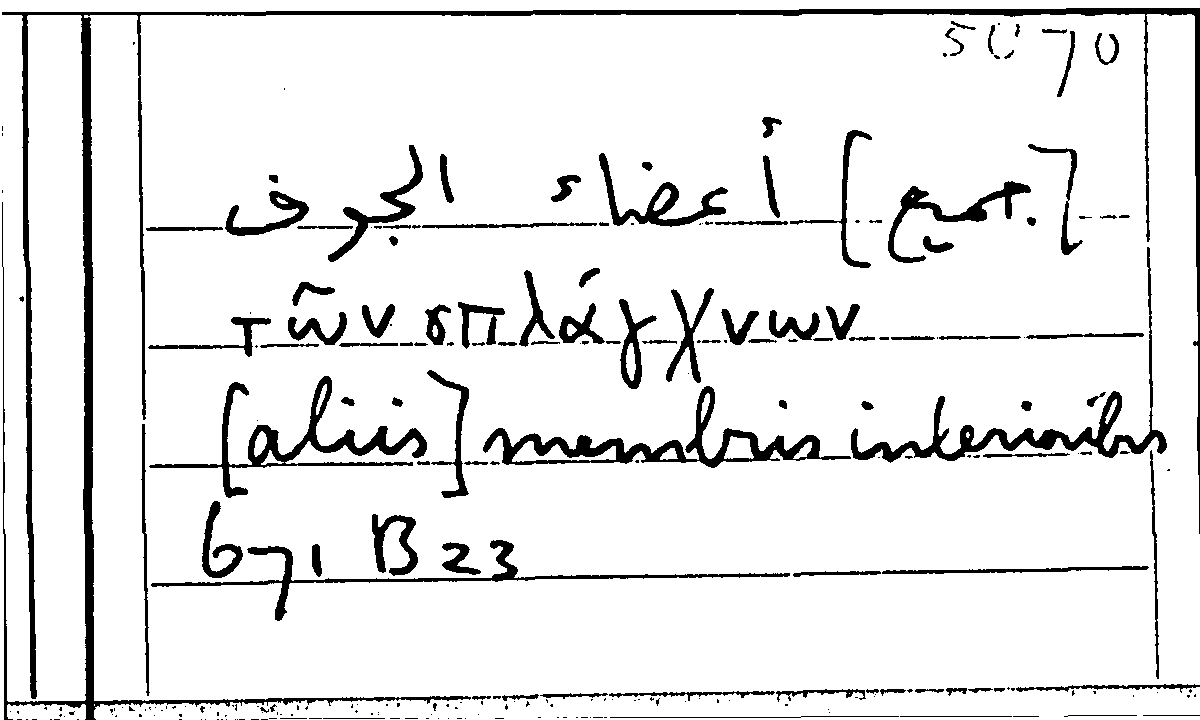 5070
[جميع] أعضاء الجوف
τῶν σπλάγχνων
[aliis] membris interioribus
671 B 23